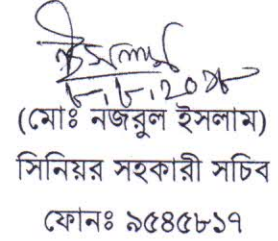 (মোঃ নজরুল ইসলাম)
সিনিয়র সহকারী সচিব
ফোনঃ ৯৫৪৫৮১৭